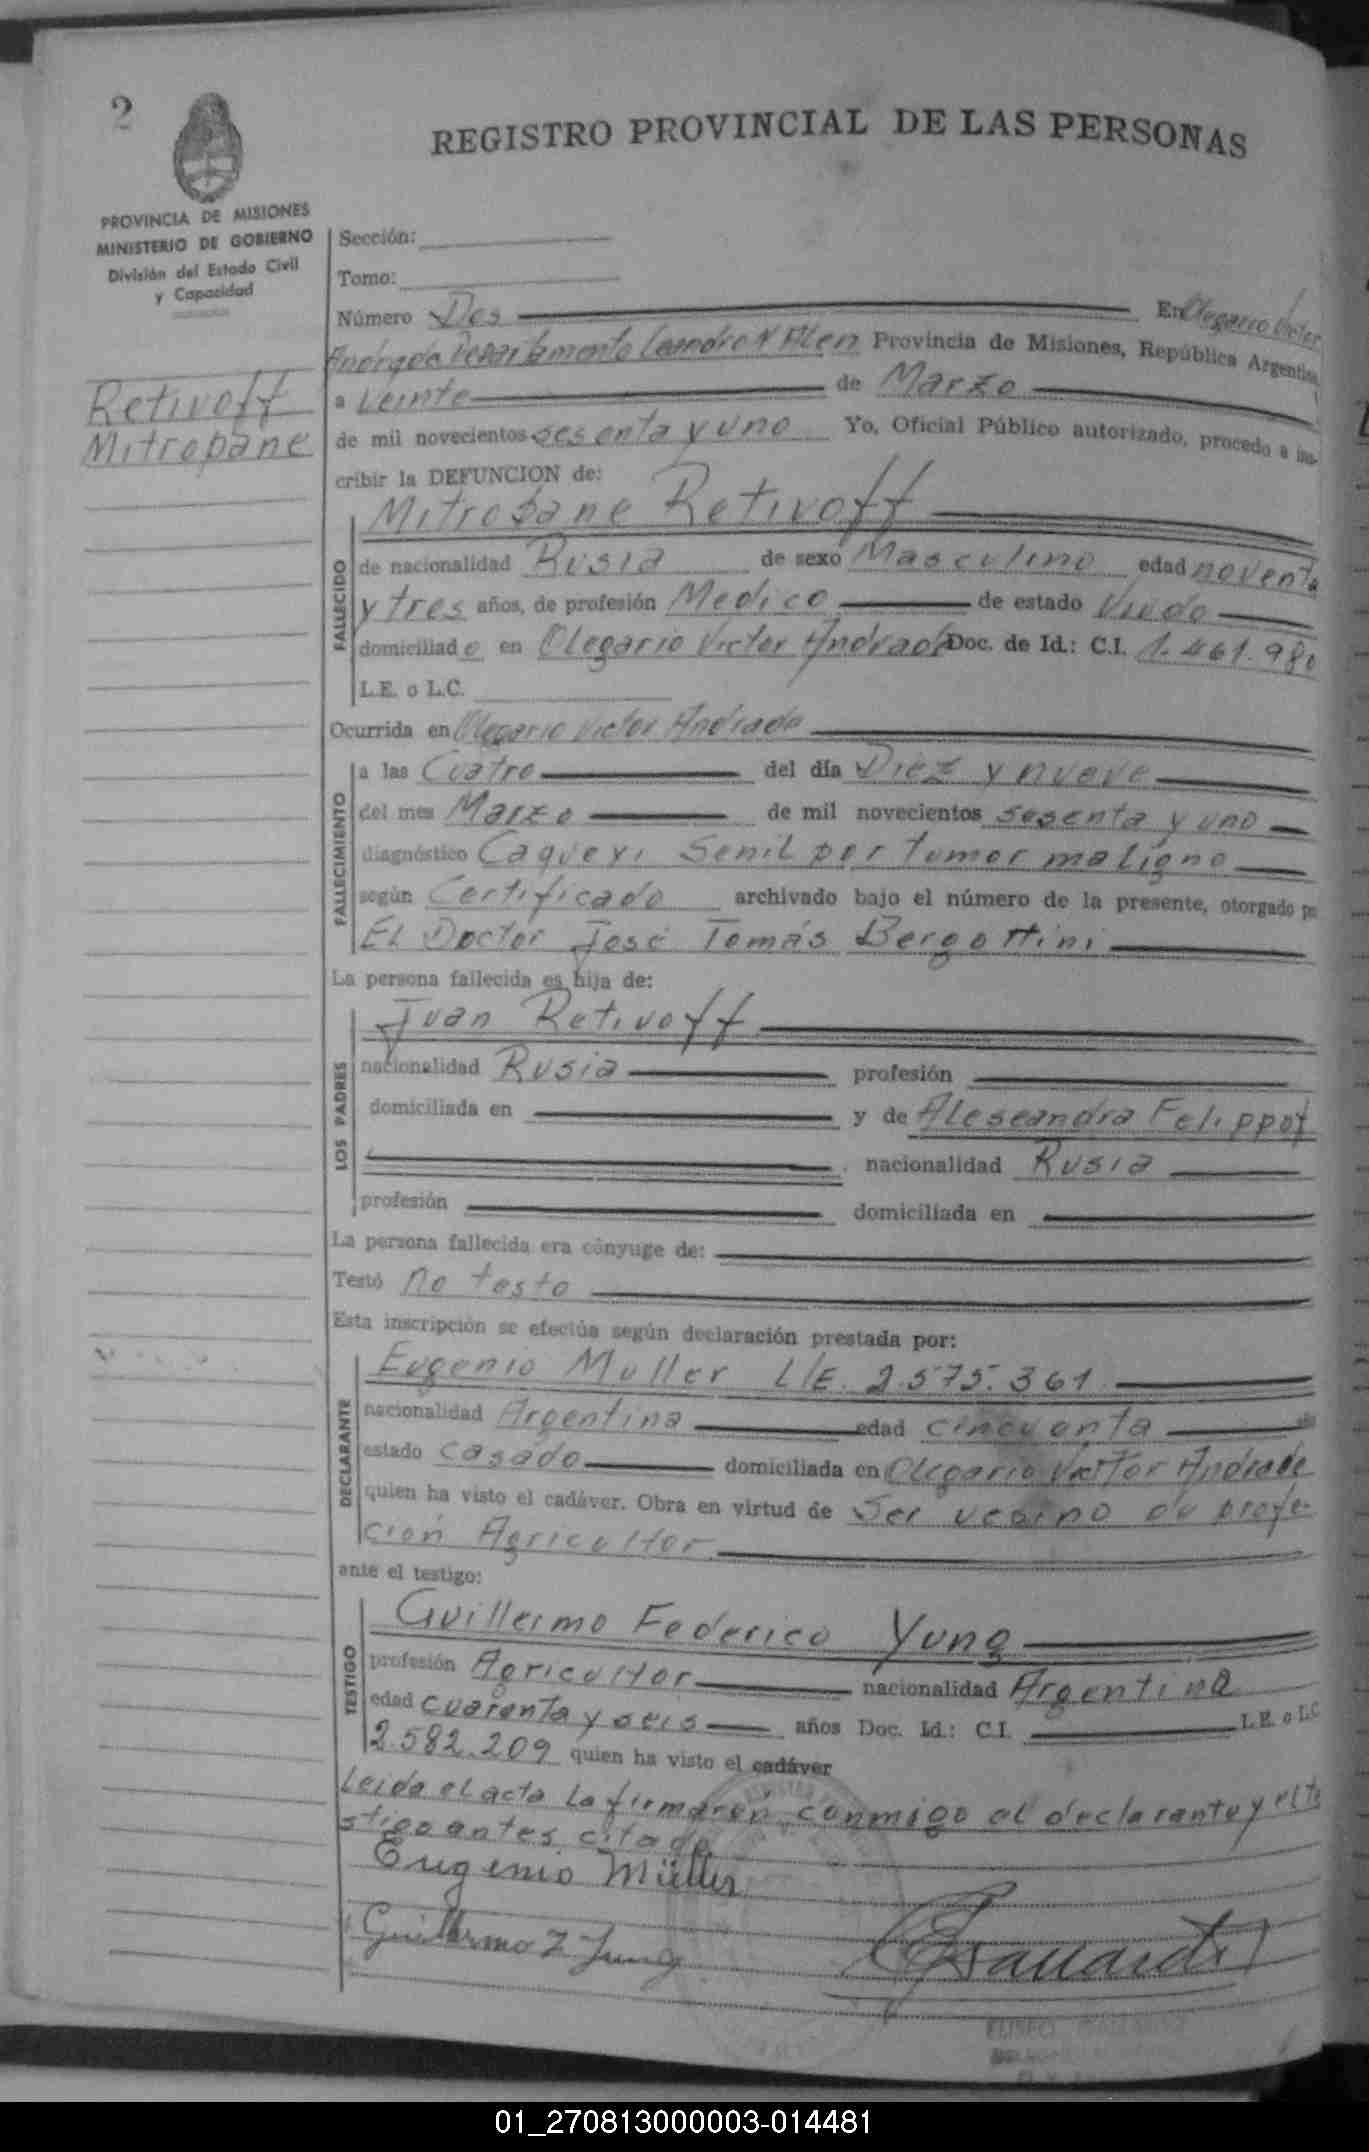 2
REGISTRO PROVINCIAL DE LAS PERSONAS
PROVINCIA DE MISIONES
MINISTERIO DE GOBIERNO
División del Estado Civil
y Capacidad
Retivoff
Mitropane
Sección:
Tomo:
Número Dos En Olegario Victor
Andrade Departamento Leandro N Alen Provincia de Misiones, República Argentina,
a veinte de Marzo
de mil novecientos sesenta y uno Yo, Oficial Público autorizado, procedo a ins-
cribir la DEFUNCION de:
Mitropane Retivoff
FALLECIDO
de nacionalidad Rusia de sexo Masculino edad noventa
y tres años, de profesión Medico de estado Viudo
domiciliado en Olegario Victor Andrade Doc. de Id.: C.I. 1.461.980
L.E. o L.C.
Ocurrida en Olegario Victor Andrade
FALLECIMIENTO
a las Cuatro del día Diez y nueve
del mes Marzo de mil novecientos sesenta y uno
diagnóstico Caquexi Senil por tumor maligno
según Certificado archivado bajo el número de la presente, otorgado po
El Doctor José Tomás Bergottini
La persona fallecida es hija de:
Juan Retivoff
LOS PADRES
nacionalidad Rusia profesión
domiciliada en y de Aleseandra Felippof
nacionalidad Rusia
profesión domiciliada en
La persona fallecida era cónyuge de:
Testó no testo
Esta inscripción se efectúa según declaración prestada por:
Eugenio Muller L/E. 2.575.361
DECLARANTE
nacionalidad Argentina edad cincuenta
estado casado domiciliada en Olegario Victor Andrade
quien ha visto el cadáver. Obra en virtud de Ser vesino de profe-
ción Agricultor
ante el testigo:
Guillermo Federico Yung
TESTIGO
profesión Agricultor nacionalidad Argentina
edad cuarenta y seis años Doc. Id.: C.I. L.E. o L.C
2.582.209 quien ha visto el cadáver
Leida el acta la firmarón conmigo el declarante y el te
stigo antes citado
Eugenio Müller
Guillermo F Jung
01_270813000003-014481